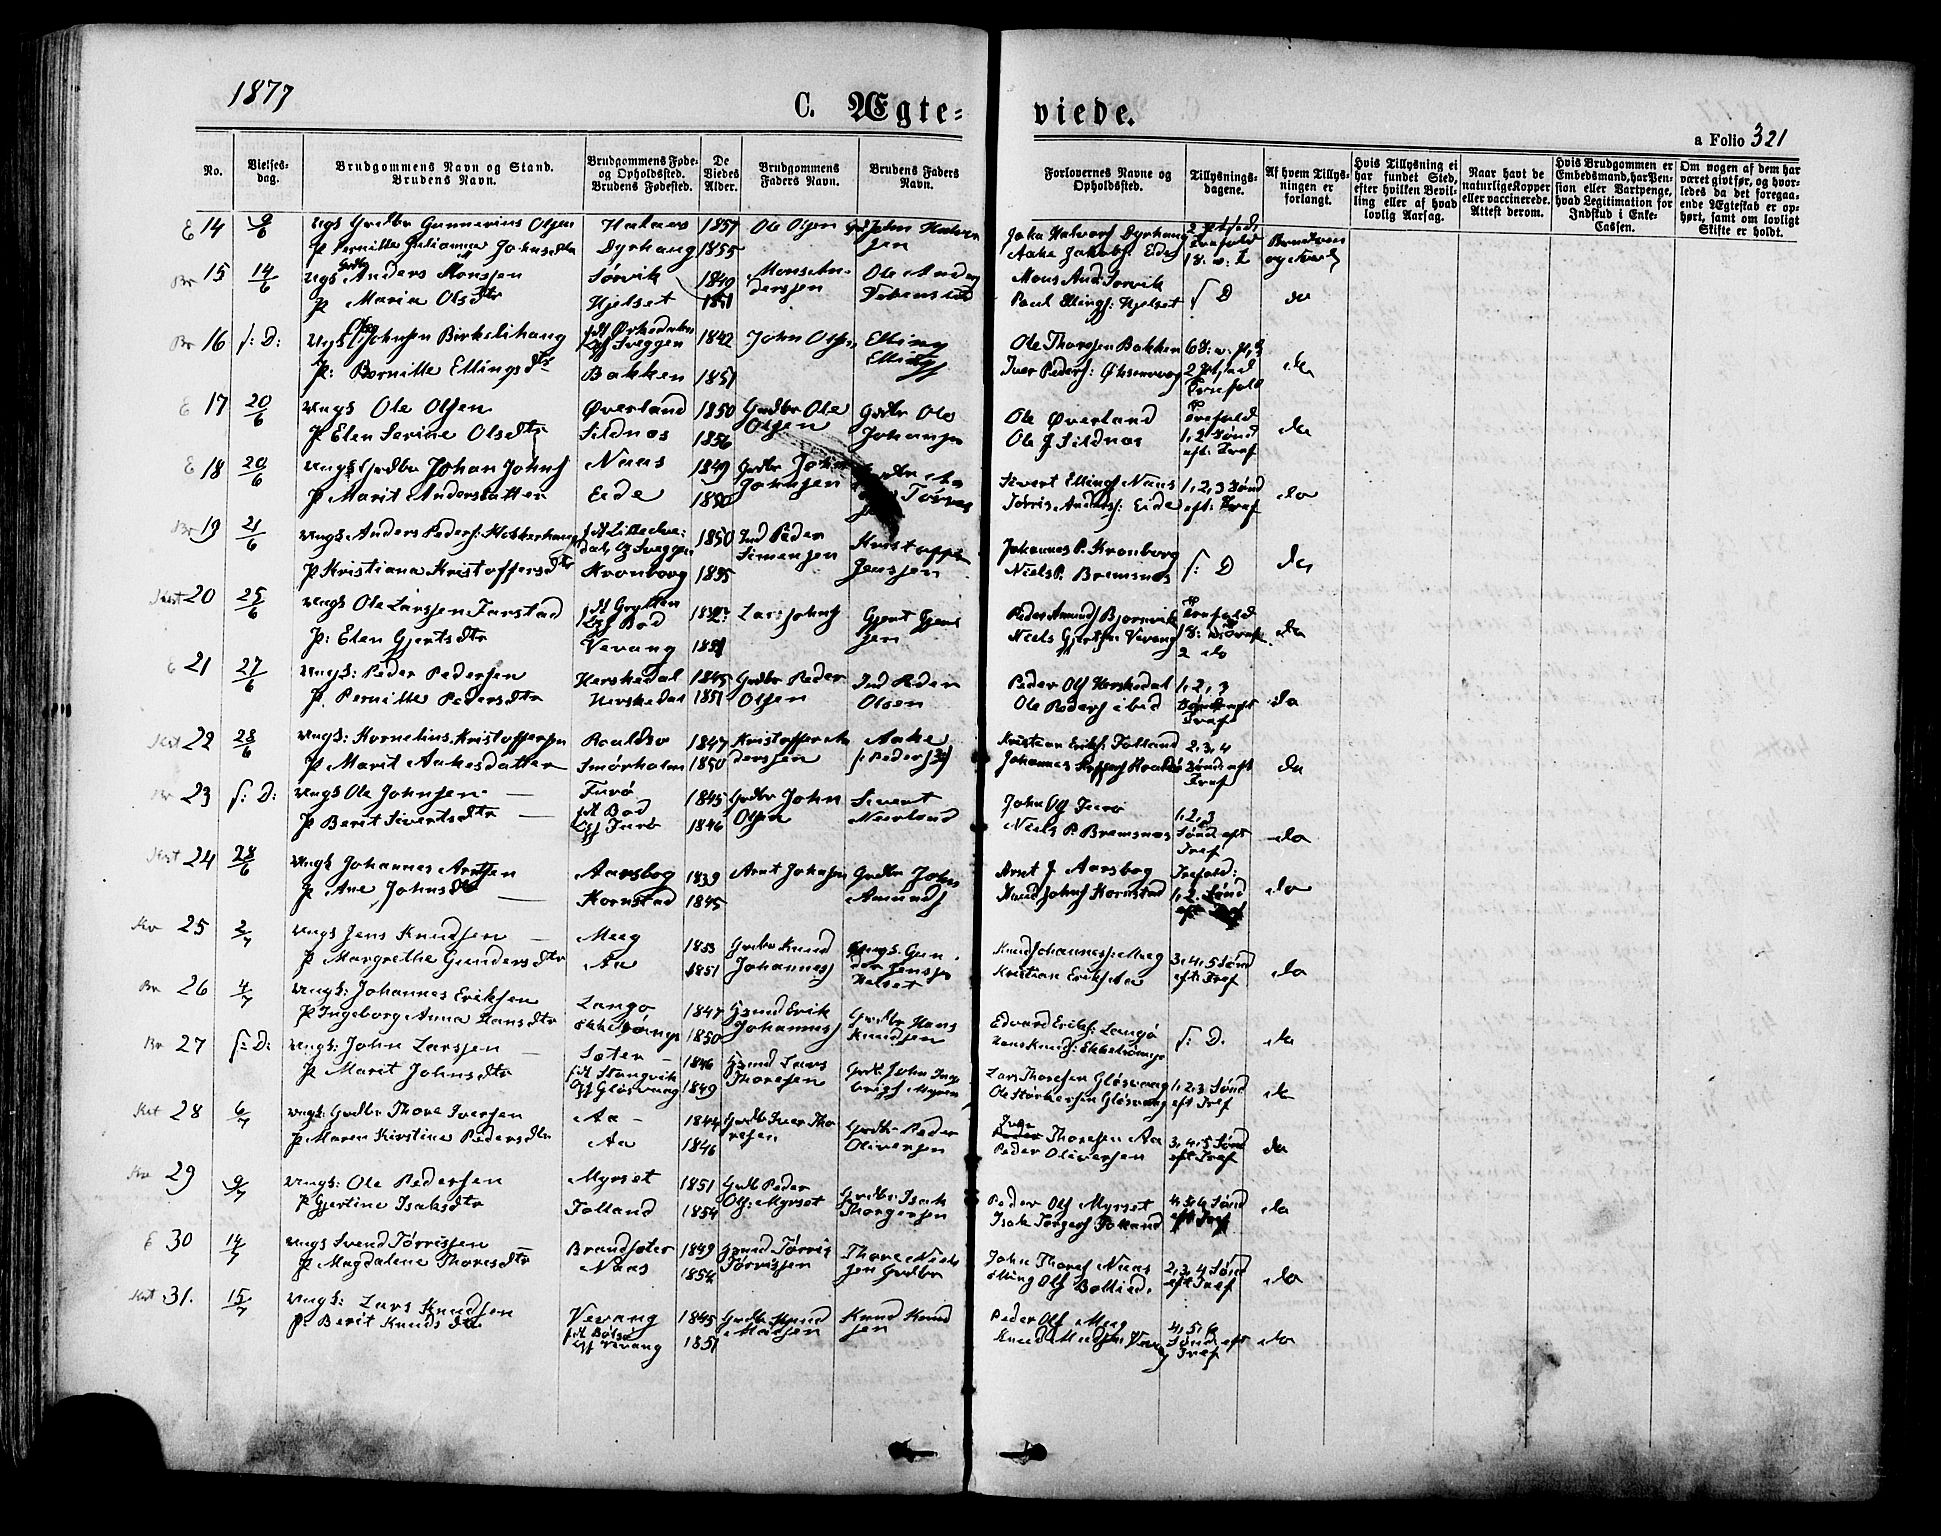 1877
C. Ægte-
viede.
a Folio 321
No.
Vielses-
dag.
Brudgommens Navn og Stand.
Brudens Navn.
Brudgommens Føde-
og Opholdssted.
Brudens Fødested.
De
Viedes
Alder.
Brudgommens
Faders Navn.
Brudens Faders
Navn.
Forlovernes Navne og
Opholdssted.
Tillysnings-
dagene.
Af hvem Tillys-
ningen er
forlangt.
Hvis Tillysning ei
har fundet Sted,
efter hvilken Bevil-
ling eller af hvad
lovlig Aarsag.
Naar havt de
naturlige Kopper
eller vaccinerede.
Attest derom.
Hvis Brudgommen er
Embedsmand, har Pen-
sion eller Vartpenge,
hvad Legitimation for
Indskud i Enke-
Cassen.
Om nogen af dem har
været givt før, og hvor-
ledes da det foregaa-
ende Ægteskab er op-
hørt, samt om lovligt
Skifte er holdt.
E 14 9/6 Ungk Grdbr Gunnerius Olsen
P Pernille Julianna Johnsdtr
Dyrhaug
1857
1855
Ole Olsen
John Halvor
sen
John Halvors Dyrhaug
Aake Jakobs: Eide
Br 15 14/6 Ungk Anders Monssen
P Maria Olsdtr
Sørvik
Hjelset
1849
1851
Mons An-
derssen
Mons And: Sørvik
Paul Ellings: Hjelset
s D
do
Br 16 s: D: Ungk Johnsen Birkelihaug
P: Pernille Ellingsdtr
Bakken
1842
1851
John Olsen
Elling
Ellings
Ole Thorssen Bakken
Iver Peders: Øksenvaag
do
E 17 20/6 Ungk Ole Olsen
P Elen Serine Olsdtr
Øverland
Sildnes
1850
1856
Grdbr Ole
Olsen
Grdbr Ole
Johansen
Ole Øverland
Ole J Sildnes
do
E 18 20/6 Ungk Grdbr Johan Johns
P Marit Andersdatter
Naas
Eide
1849
1850
Grdbr John
Johnsen
Sivert Ellings Naas
Tørris Anders: Eide
1, 2, 3 Sønd
eft: Tref
do
Br 19 21/6 Ungk Anders Peders:
P Kristiana Kristoffersdtr
Kronborg
1850
1855
Ind Peder
Simensen
Kristoffer
Jenssen
Johannes P. Kronborg
Niels P. Bremsnes
s: D
do
Krst 20 25/6 Ungk Ole Larssen Farstad
P: Elen Gjertsdtr
fdt Grytten
Opf Bod
Vevang
1851
Lars Johns
Gjert Gjert
sen
Peder Amunds Bjørnvik
Niels Gjertsen Vevang
do
E 21 27/6 Ungk: Peder Pedersen
P. Pernille Pedersdtr
Herskedal
Herskedal
1845
1851
Grdbr Peder
Olsen
Ind Peder
Olsen
Peder Ols Herskedal
Ole Peders ibid
1, 2, 3
do
Krst 22 28/6 Ungk: Kornelius Kristoffersen
P Marit Aakesdatter
Smørholm
1847
1850
Kristoffer An
derssen
Aake
Kristian Eriks: Folland
2, 3, 4
do
Br 23 s: D: Ungk Ole Johnsen
P Berit Sivertsdtr
Furø
fdt Bod
Opf Furø
1845
1846
Grdbr John
Olsen
Sivert
Nerland
John Ols Furø
Niels P. Bremsnes
1, 2, 3
Sønd: eft
Tref
do
Krst 24 28/6 Ungk Johannes Arntsen
P Ane Johnsdtr
Aarsbog
Kornstad
1839
1845
Arnt Johnsen
Grdbr John
Amunds
Arnt J. Aarsbog
Knud Johns Kornstad
Trefold:
1, 2. Sønd
do
Kv 25 2/7 Ungk Jens Knudsen
P Margrethe Gundersdtr
Meeg
Aa
1853
1851
Grdbr Knud
Johanness
Knud Johanness: Meeg
Kristian Eriks Aa
3, 4, 5 Sønd
eft: Tref
do
Br 26 4/7 Ungk: Johannes Eriksen
P Ingeborg Anna Hansdtr
Langø
1847
1850
Johanness
Grdbr Hans
Knudsen
Edvard Eriks: Langø
s: D.
do
Br 27 s: D: Ungk: John Larssen
P Marit Johnsdtr
Sæter
fdt Stangvik
Opf Gløsvaag
1846
1849
Thoresen
Lars Thoresen Gløsvaag
1, 2, 3 Sønd
eft Tref
do
Krst 28 6/7 Ungk: Grdbr Thore Iversen
P Maren Kirstine Pedersdtr
Aa
Aa
1844
1846
Grdbr Iver Tho
resen
Grdbr Peder
Oliversen
Iver
Peder Thoresen Aa
Peder Oliversen
3, 4, 5 Sønd
eft Tref
do
Kv 29 9/7 Ungk: Ole Pedersen
P Gjertine Isaksdtr
Myrset
Folland
1851
1854
Grdb Peder
Ols: Myrset
Grdbr Isak
Thorgersen
Peder Ols Myrset
Isak Torgers Folland
4, 5, 6 Sønd
eft Tref
do
E 30 14/7 Ungk Svend Tørrissen
P Magdalene Thoresdtr
Brandsæter
Naas
1849
1854
Tørrissen
Thore Niels
sen Grdbr
John Thores Naas
2, 3, 4 Sønd
eft Tref
do
Krst 31. 15/7 Ungk: Lars Knudsen
P. Berit Knudsdtr
Vevang
Opf Vevang
1845
1851
Grdbr Knud
Madsen
Knud Knud
sen
Peder Ols Meeg
4, 5, 6
Sønd: eft
Tref
do